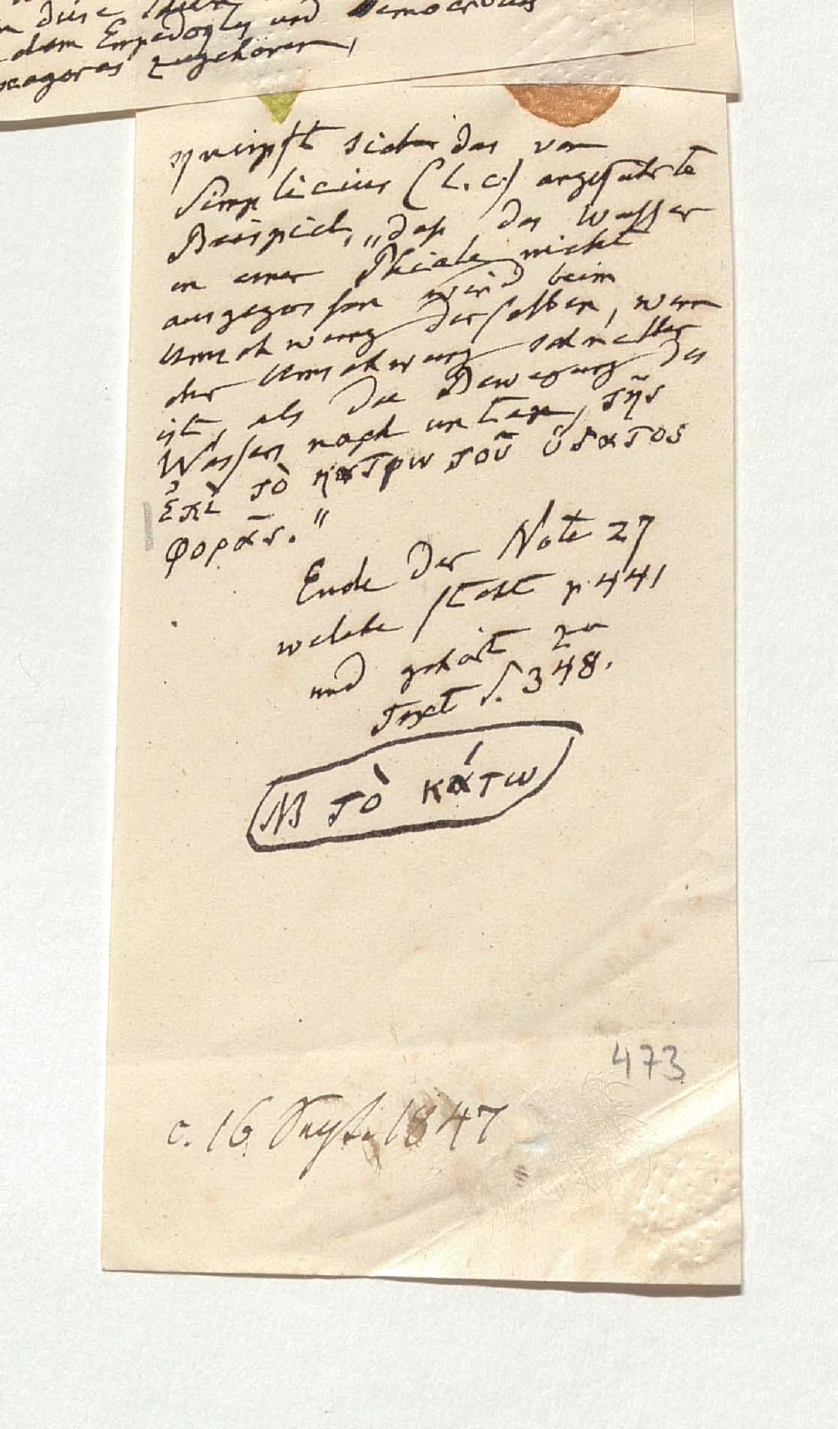 diese
dem Empedocles und Democritus
axagoras zugehören,
knüpft sich das von
Simplicius (l. c.) angeführte
Beispiel, „daß das Wasser
in einer Phiale nicht
ausgegossen wird beim
Umschwung derselben, wenn
der Umschwung schneller
ist, als die Bewegung des
Wassers nach unten, τῆς
ἐπὶ τὸ κάτω τοῦ ὕδατος
φορᾶς.“
Ende der Note 27
welche steht p. 441
und gehört zu
Text S. 348.
NB τὸ κάτω
473
c. 16 Sept. 1847